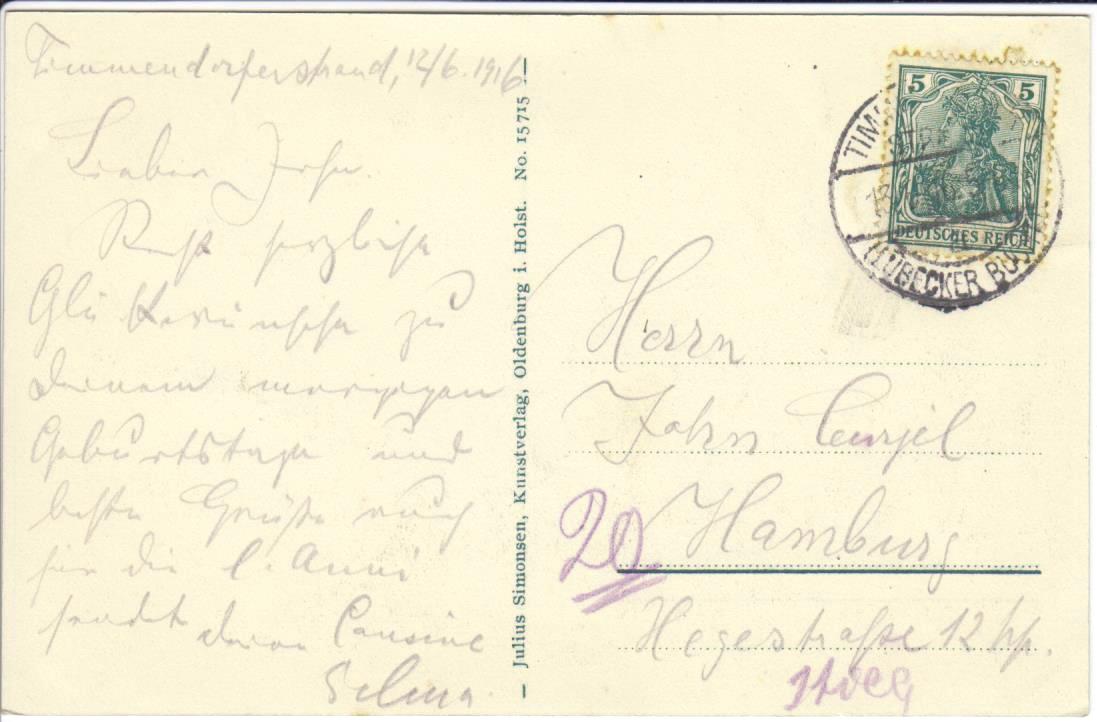 Timmendorferstrand, 12/6.1916
Lieber John.
Recht herzliche
Glückwünsche zu
Deinem morgigen
Geburtstage und
beste Grüße auch
für die l. Anni
sendet deine Cousine
Selma.
— Julius Simonsen, Kunstverlag, Oldenburg i. Holst. No. 15715 —
5 5
DEUTSCHES REICH
TIM
LÜBECKER BU
Herrn
John Curjel
20 Hamburg
Hegestraße 12 hp.